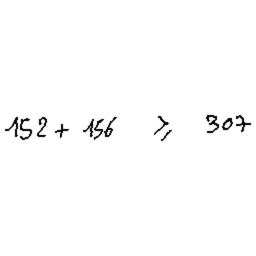 152 + 156 ⩾ 307